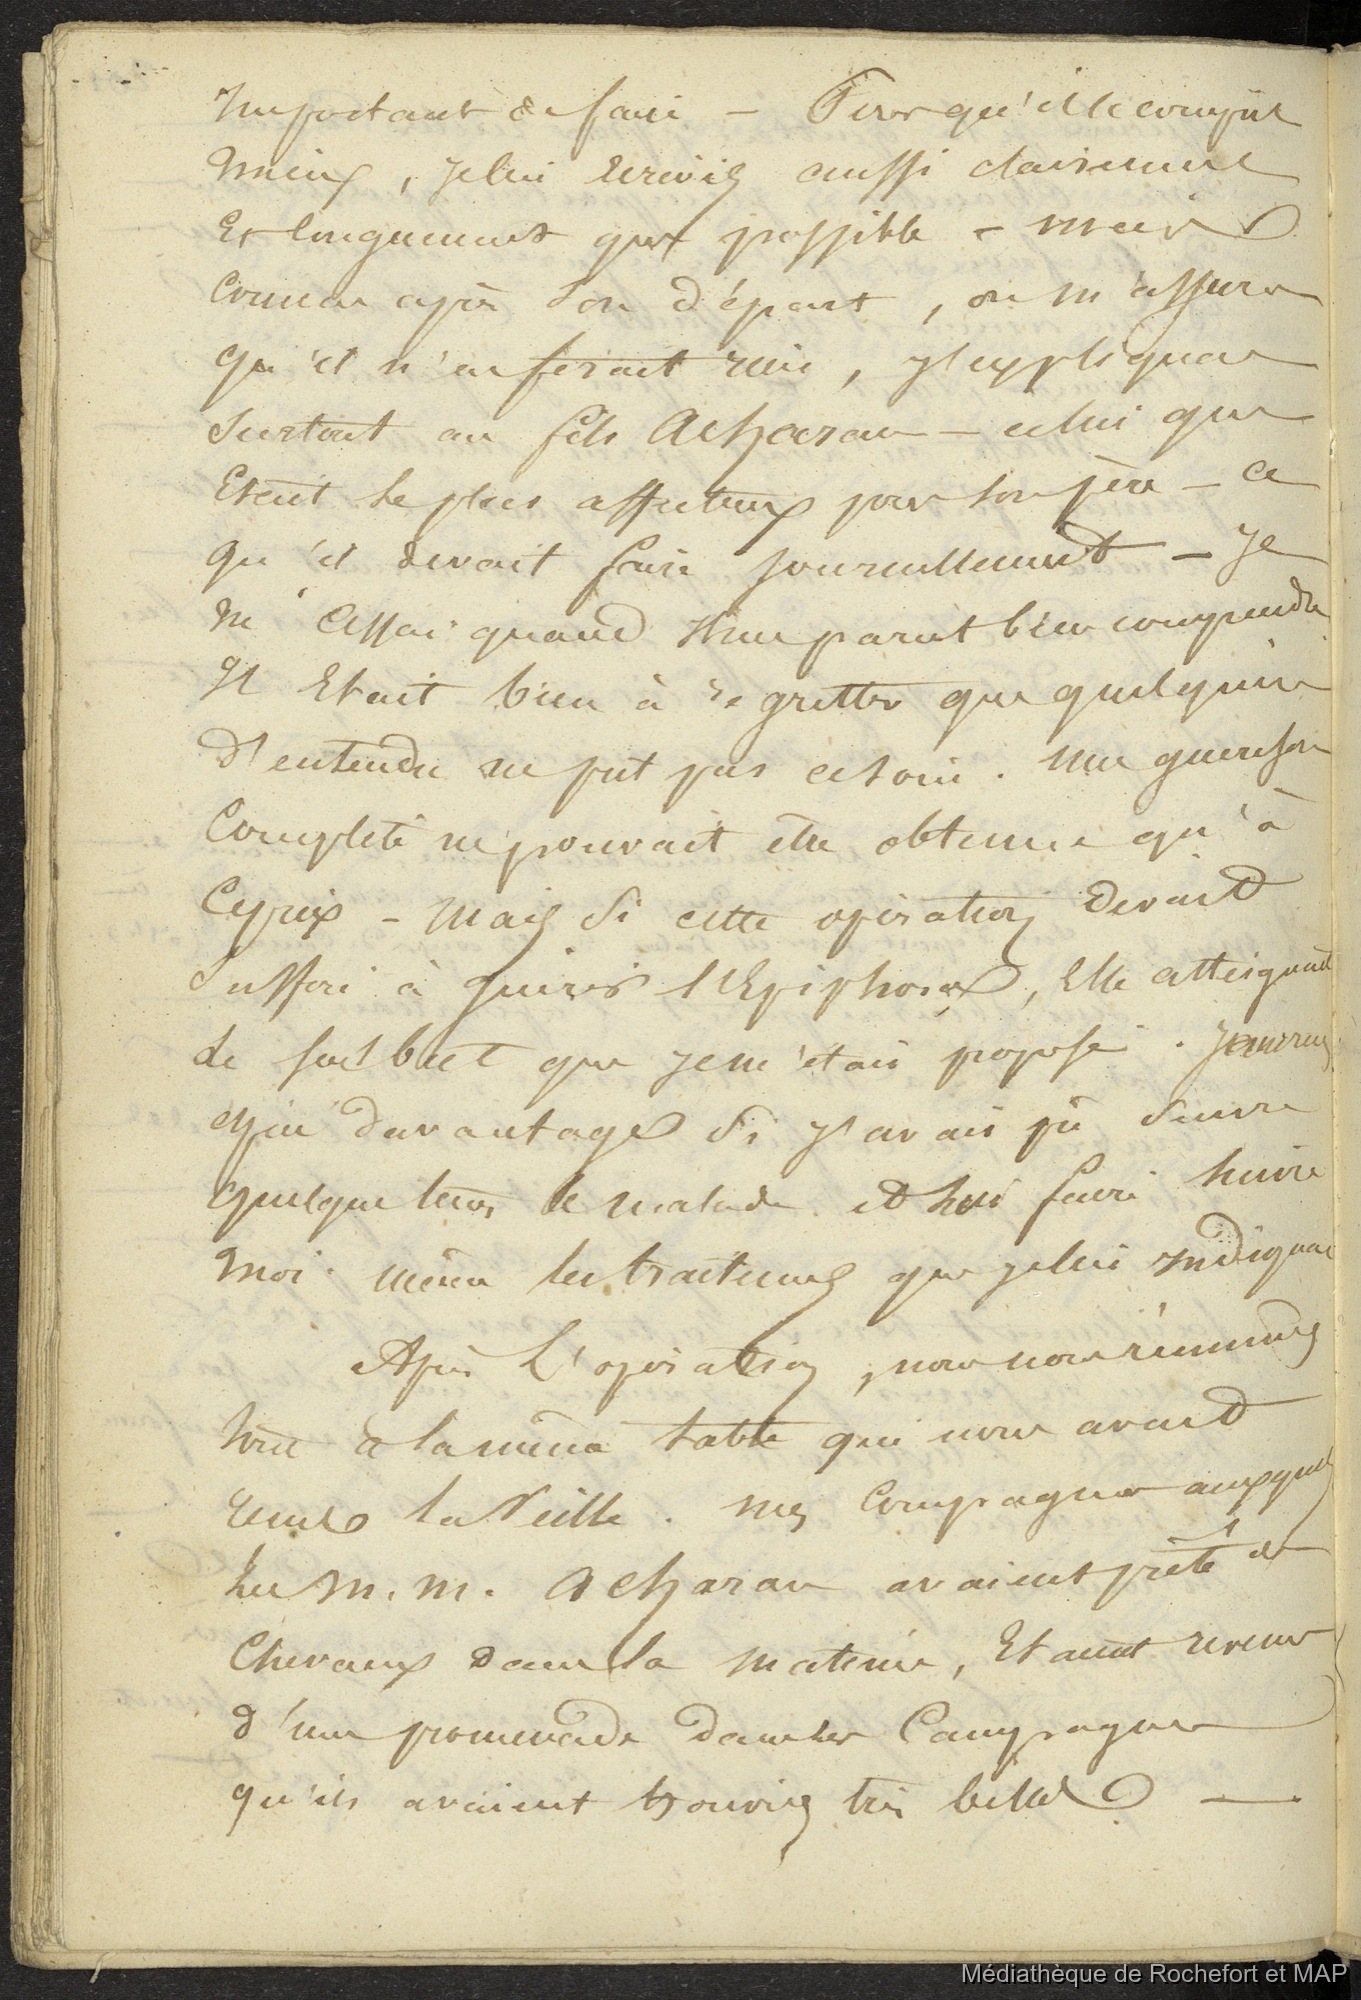 Important de faire – Pour qu'il le comprit
mieux, je lui écrivis aussi clairement
Et longuement que possible – mais
comme après son départ, on m'assura
qu'il n'en ferait rien, j'expliquai
surtout au fils Acharan – celui qui
Etait le plus affectueux pour son père – ce
qu'il devait faire journellement – Je
ne cessai quand il me parut bien comprendre
Il Etait bien à regretter que quelqu'un
d'entendu ne prit pas ce soin. Une guerison
Complete ne pouvait être obtenue qu'à
Ce prix – mais si cette opération devait
suffire à guérir l'Epiphora, Elle atteignait
le seul but que je m'étais proposé.
espéré davantage si j'avais pû suivre
quelque tems le malade et lui faire suivre
moi-même les traitemens que je lui indiquai
Après l'opération, nous nous réunimes
tous à la même table qui nous avait
reunis la Veille. mes Compagnons auxquels
les M. M. Acharan avaient prêté des
Chevaux dans la matinée, Etaient revenus
d'une promenade dans les Campagnes
qu'ils avaient trouvées très belles —
Médiathèque de Rochefort et MAP